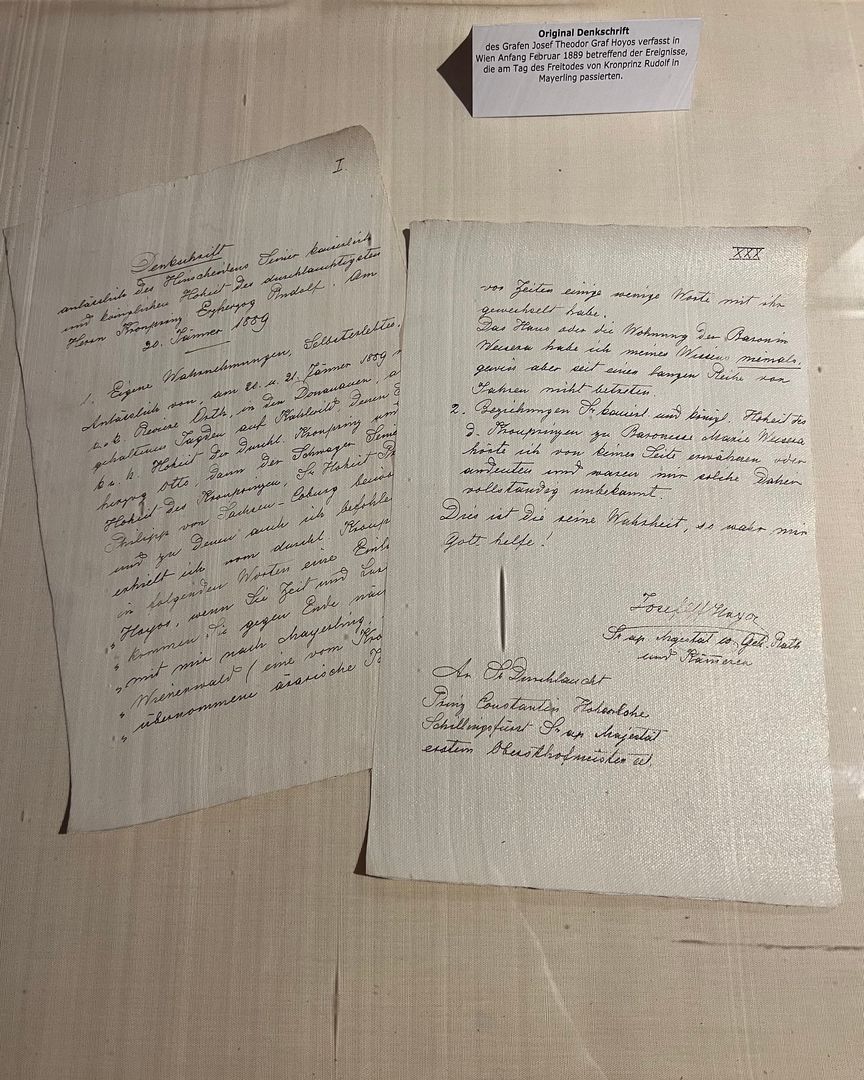 Original Denkschrift
des Grafen Josef Theodor Graf Hoyos verfasst in
Wien Anfang Februar 1889 betreffend der Ereignisse,
die am Tag des Freitodes von Kronprinz Rudolf in
Mayerling passierten.
I.
Denkschrift
anlässlich des Hinscheidens Seiner kaiserlich
und königlichen Hoheit des durchlauchtigsten
Herrn Kronprinz Erzherzog Rudolf. Am
Jänner 1889
1. Eigene Wahrnehmungen, Selbsterlebtes.
Anlässlich von, am 20. u. 21. Jänner 1889
Revier Orth, in den Donauauen, a
gehaltenen Jagden auf Kahlwild, denen
k. u. k. Hoheit der durchl. Kronprinz und
herzog Otto, dann der Schwager Seiner
Hoheit des Kronprinzen, Sr. Hoheit Pr
Philipp von Sachsen-Coburg beiwo
und zu denen auch ich befohlen
erhielt ich vom durchl. Kronpr
in folgenden Worten eine Einl
" Hoyos, wenn Sie Zeit und Lus
" kommen Sie gegen Ende näc
" mit mir nach Mayerling,
" Wienerwald (eine vom Kro
" übernommene ärarische
XXX
vor Zeiten einige wenige Worte mit ihr
gewechselt habe.
Das Haus oder die Wohnung der Baronin
Vecsera habe ich meines Wissens niemals,
gewiss aber seit einer langen Reihe von
Jahren nicht betreten.
2. Beziehungen Sr. kaiserl. und königl. Hoheit des
d. Kronprinzen zu Baronesse Marie Vecsera
hörte ich von keiner Seite erwähnen oder
andeuten und waren mir solche Daher
vollständig unbekannt.
Dies ist die reine Wahrheit, so wahr mir
Gott helfe!
Josef Hoyos
Sr. ap. Majestät w. Geh. Rath
und Kämmerer
An Sr. Durchlaucht
Prinz Constantin Hohenlohe
Schillingsfürst Sr. ap. Majestät
erstem Obersthofmeister